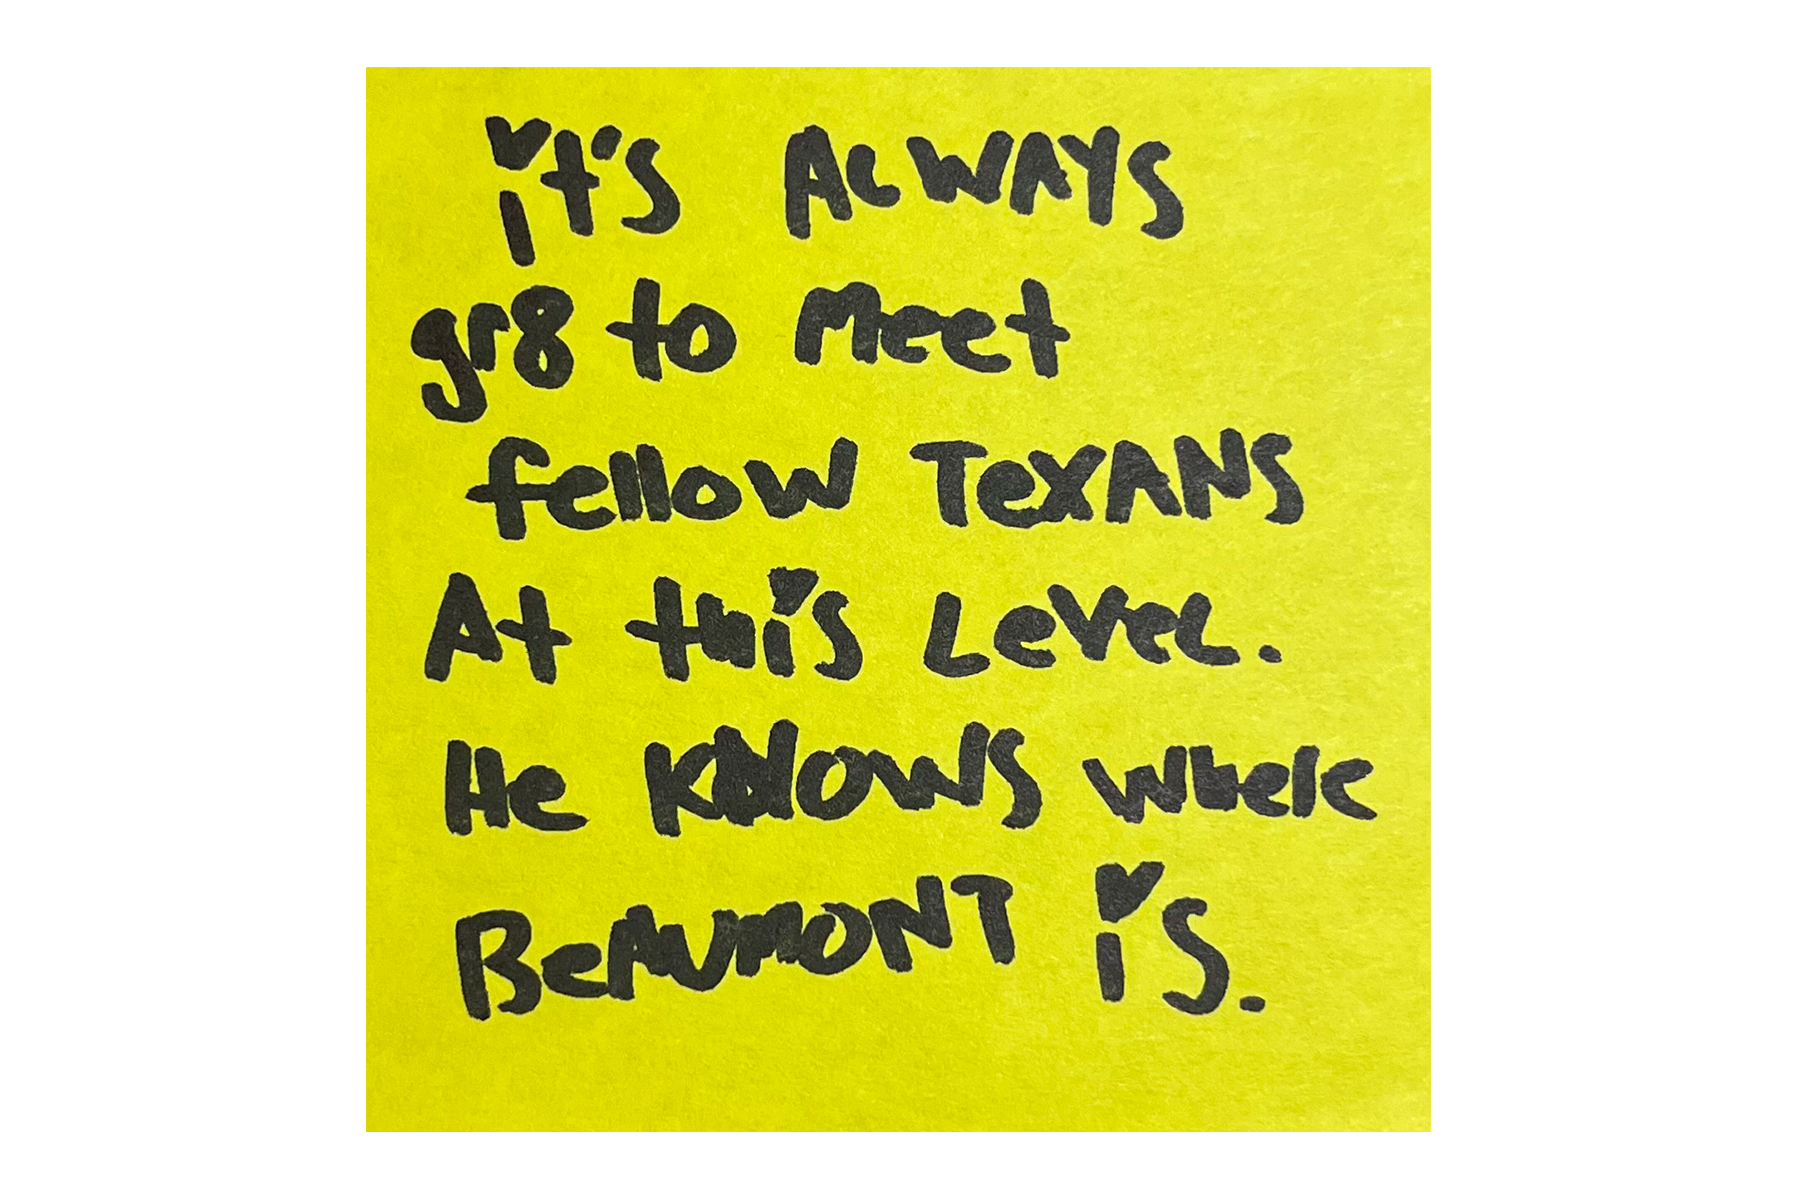 it's ALWAYS
gr8 to Meet
fellow TexANS
At this Level.
He KNOWS where
BeAUMONT is.